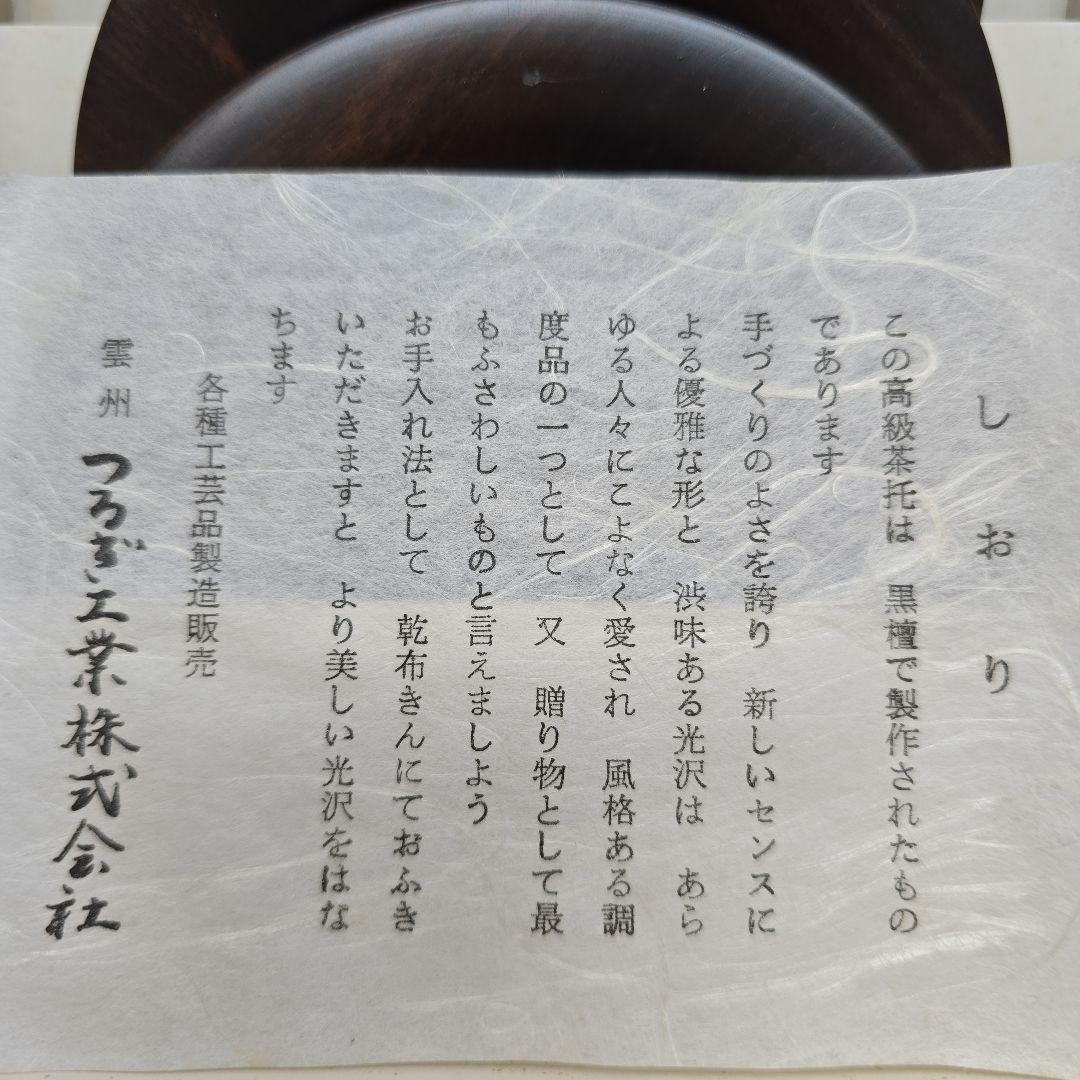 しおり
この高級茶托は　黒檀で製作されたもの
であります
手づくりのよさを誇り　新しいセンスに
よる優雅な形と　渋味ある光沢は　あら
ゆる人々にこよなく愛され　風格ある調
度品の一つとして　又　贈り物として最
もふさわしいものと言えましよう
お手入れ法として　乾布きんにておふき
いただきますと　より美しい光沢をはな
ちます
各種工芸品製造販売
雲州　つるぎ工業株式会社